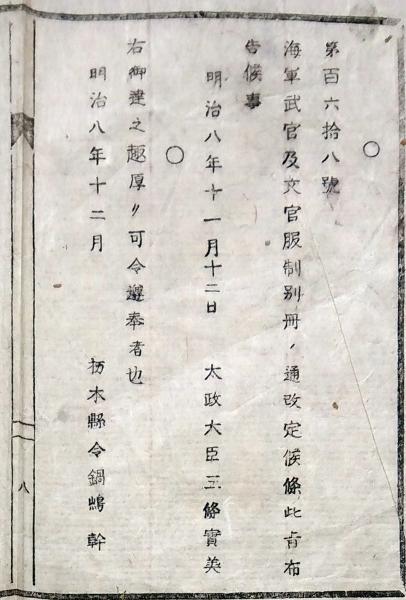 第百六拾八號
海軍武官及文官服制別冊ノ通改定候條此旨布
告候事
明治八年十一月十二日 太政大臣三條實美
右御達之趣厚ク可令遵奉者也
明治八年十二月 栃木縣令鍋嶋幹
八